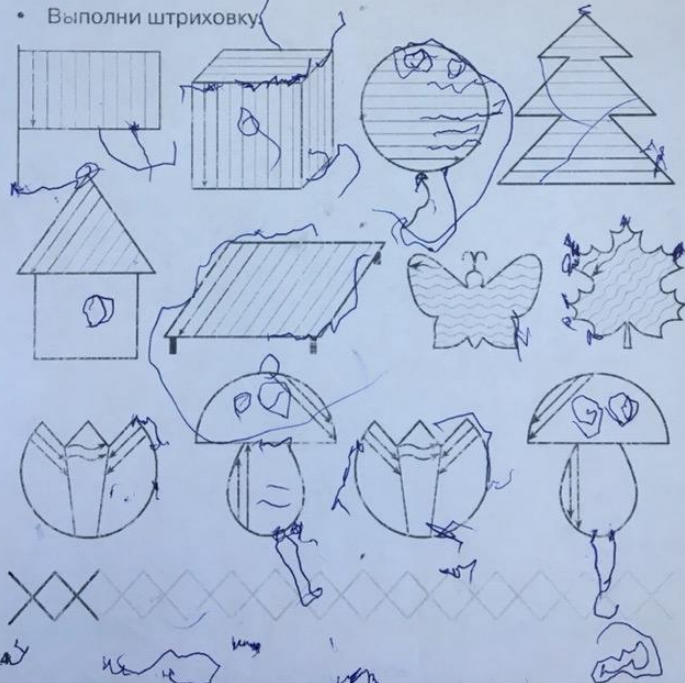 • Выполни штриховку.